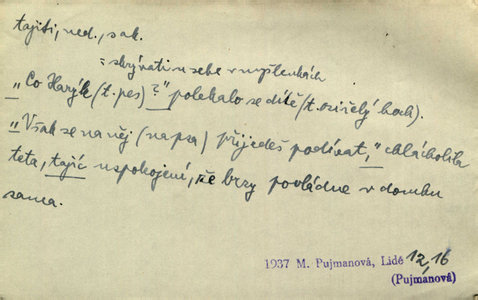 tajiti, ned., sak.
= skrývati u sebe v myšlenkách
„Co Haryk (t. pes)?“ polekalo se dítě (t. osiřelý hoch).
„Však se na něj (na psa) přijedeš podívat,“ chlácholila
teta, tajíc uspokojení, že brzy povládne v domku
sama.
1937 M. Pujmanová, Lidé 12, 16
(Pujmanová)